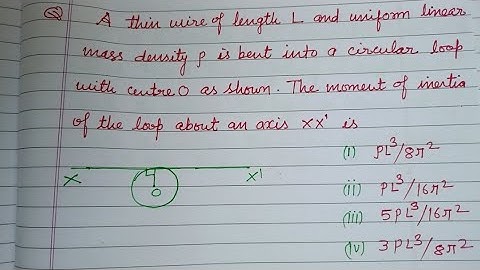 Q A thin wire of length L and uniform linear
mass density ρ is bent into a circular loop
with centre O as shown. The moment of inertia
of the loop about an axis XX' is
(i) ρL³/8π²
(ii) ρL³/16π²
(iii) 5ρL³/16π²
(iv) 3ρL³/8π²
X X'
O